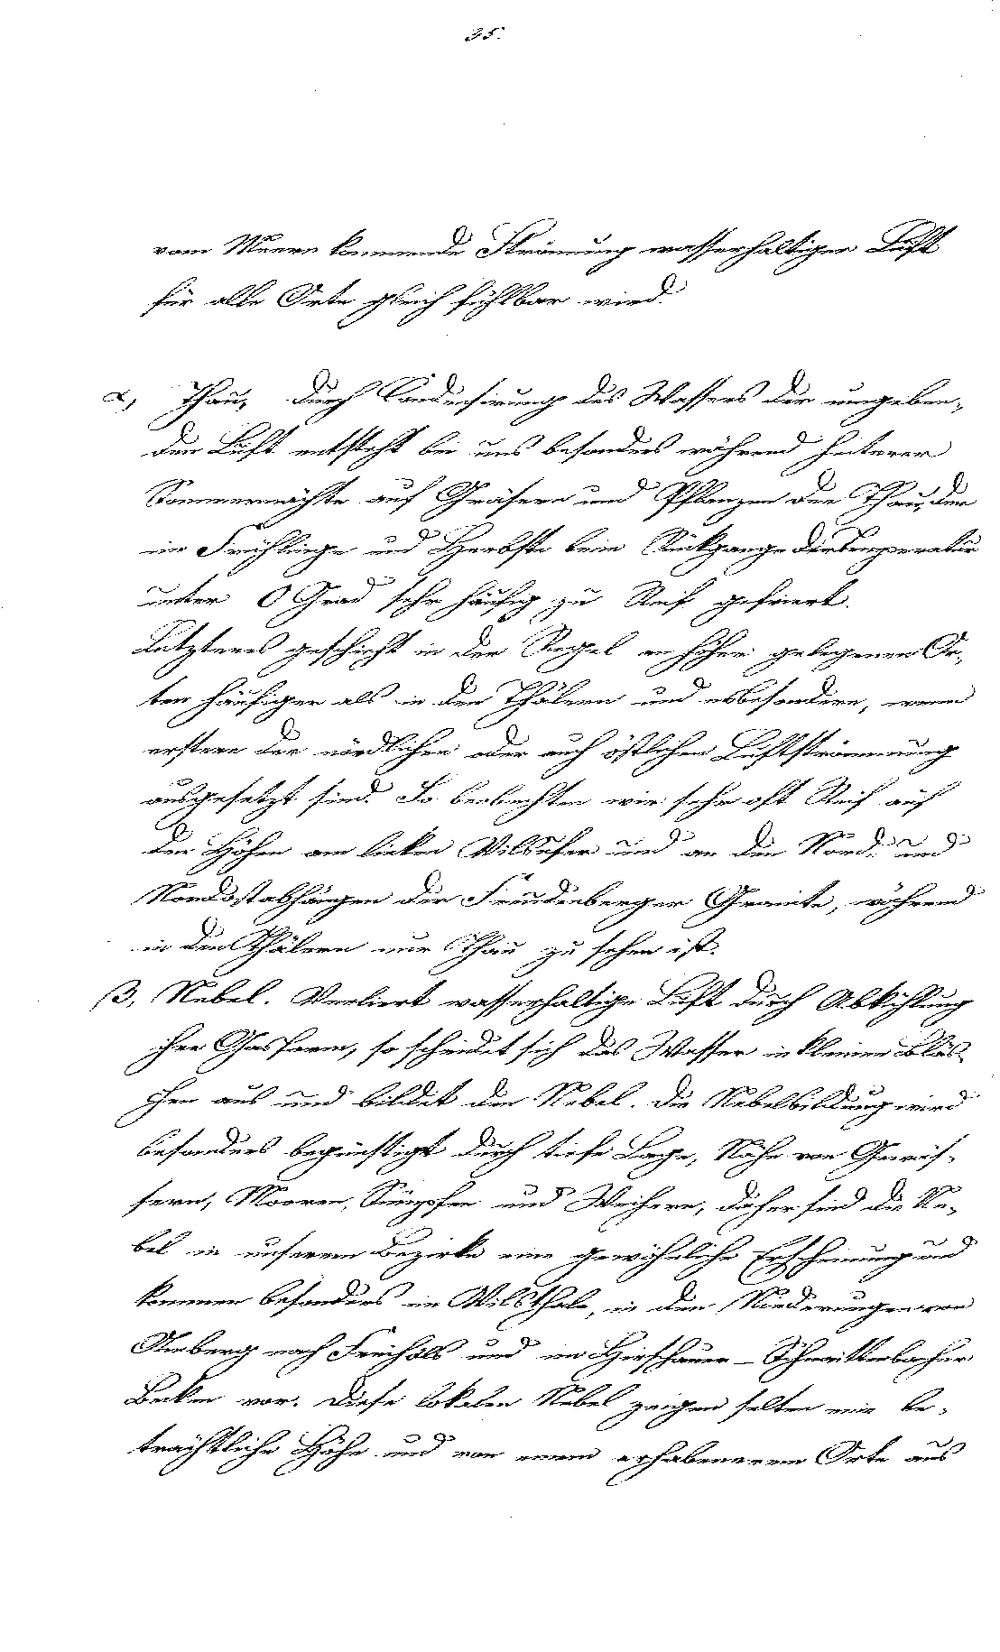 35.
vom Meere kommende Strömung wasserhaltiger Luft
für alle Orte gleich fühlbar wird.
α, Thau, durch Condensirung des Wassers der umgeben-
den Luft entsteht bei uns besonders während heiterer
Sommernächte auf Gräsern und Pflanzen der Thau, der
im Frühlinge und Herbste beim Rückgange der Temperatur
unter 0 Grad sehr häufig zu Reif gefriert.
Letzteres geschieht in der Regel an höher gelegenen Or-
ten häufiger als in den Thälern und insbesondere, wenn
erstere der nördlichen oder auch östlichen Luftströmung
ausgesetzt sind. So beobachten wir sehr oft Reif auf
den Höhen am linken Vilsufer und an den Nord- und
Nordostabhängen der Freudenberger Granite, während
in den Thälern nur Thau zu sehen ist.
β, Nebel. Verliert wasserhaltige Luft durch Abkühlung
ihre Gasform, so scheidet sich das Wasser in kleinen Bläs-
chen aus und bildet den Nebel. Die Nebelbildung wird
besonders begünstigt durch tiefe Lage, Nähe von Gewäs-
sern, Mooren, Sümpfen und Weihern, daher sind die Ne-
bel in unserem Bezirke eine gewöhnliche Erscheinung und
kommen besonders im Vilsthale, in den Niederungen von
Amberg nach Freihöls und im Hirschauer-Schnaittenbacher
Becken vor. Diese lokalen Nebel zeigen selten eine be-
trächtliche Höhe und von einem erhabeneren Orte aus